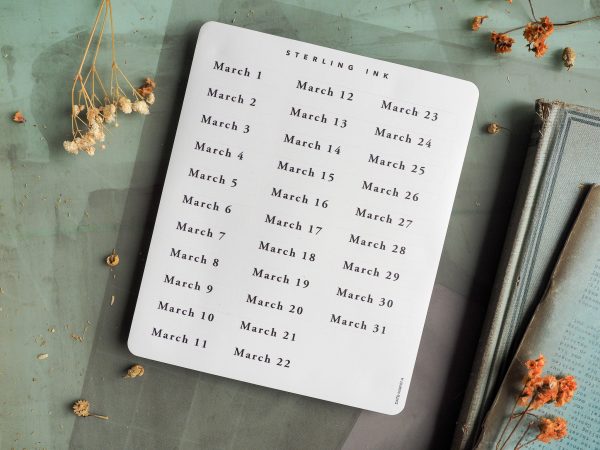 STERLING INK
March 1
March 2
March 3
March 4
March 5
March 6
March 7
March 8
March 9
March 10
March 11
March 12
March 13
March 14
March 15
March 16
March 17
March 18
March 19
March 20
March 21
March 22
March 23
March 24
March 25
March 26
March 27
March 28
March 29
March 30
March 31